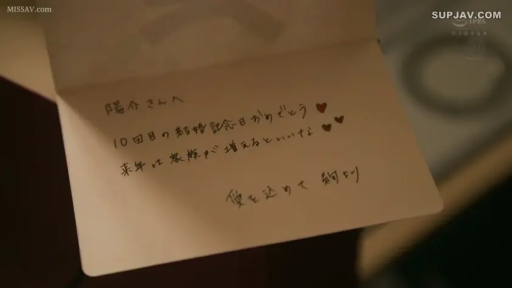 MISSAV.com
SUPJAV.COM
陽介さんへ
10回目の結婚記念日おめでとう♥
来年は家族が増えるといいな♥♥
愛を込めて 絢より